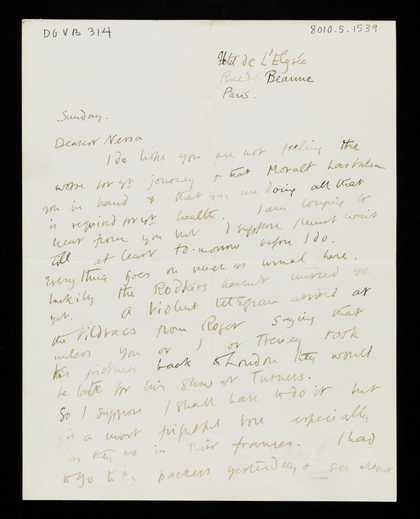 DGVB 314
8010.5.1539
Hotel de L'Elysée
Rue de Beaune
Paris.
Sunday.
Dearest Nessa
I do hope you are not feeling the
worse for yr journey & that Moralt has taken
you in hand & that you are doing all that
is required for yr health. I am longing to
hear from you but I suppose I must wait
till at least to-morrow before I do.
Everything goes on much as usual here.
Luckily the Rodkers haven't arrived as
yet. A violent telegram arrived at
the Vildracs from Roger saying that
unless you or I or Tressy took
his pictures back to London they would
be late for his show at Turners.
So I suppose I shall have to do it but
it's a most frightful bore especially
as they are in their frames. I had
to go to the packers yesterday & see about